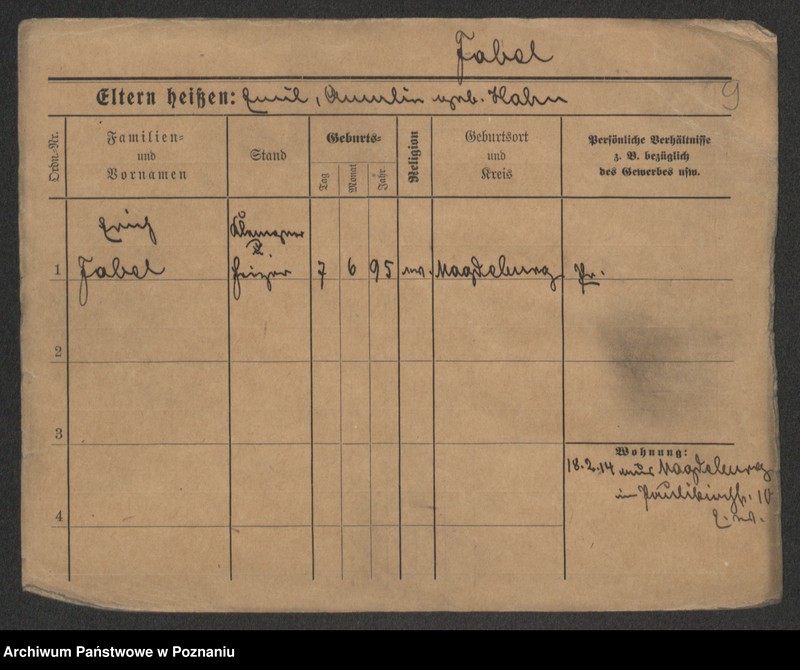 Fabel
19
Eltern heißen: Emil, Aurelie geb. Hahn
Ordn.-Nr.
Familien-
und
Vornamen
Stand
Geburts-
Tag
Monat
Jahr
Religion
Geburtsort
und
Kreis
Persönliche Verhältnisse
z. B. bezüglich
des Gewerbes usw.
Erich
Klempner
u.
1 Fabel Heizer 7 6 95 ev. Magdeburg Pr.
2
3
4
Wohnung:
18.2.14 aus Magdeburg
10
Archiwum Państwowe w Poznaniu